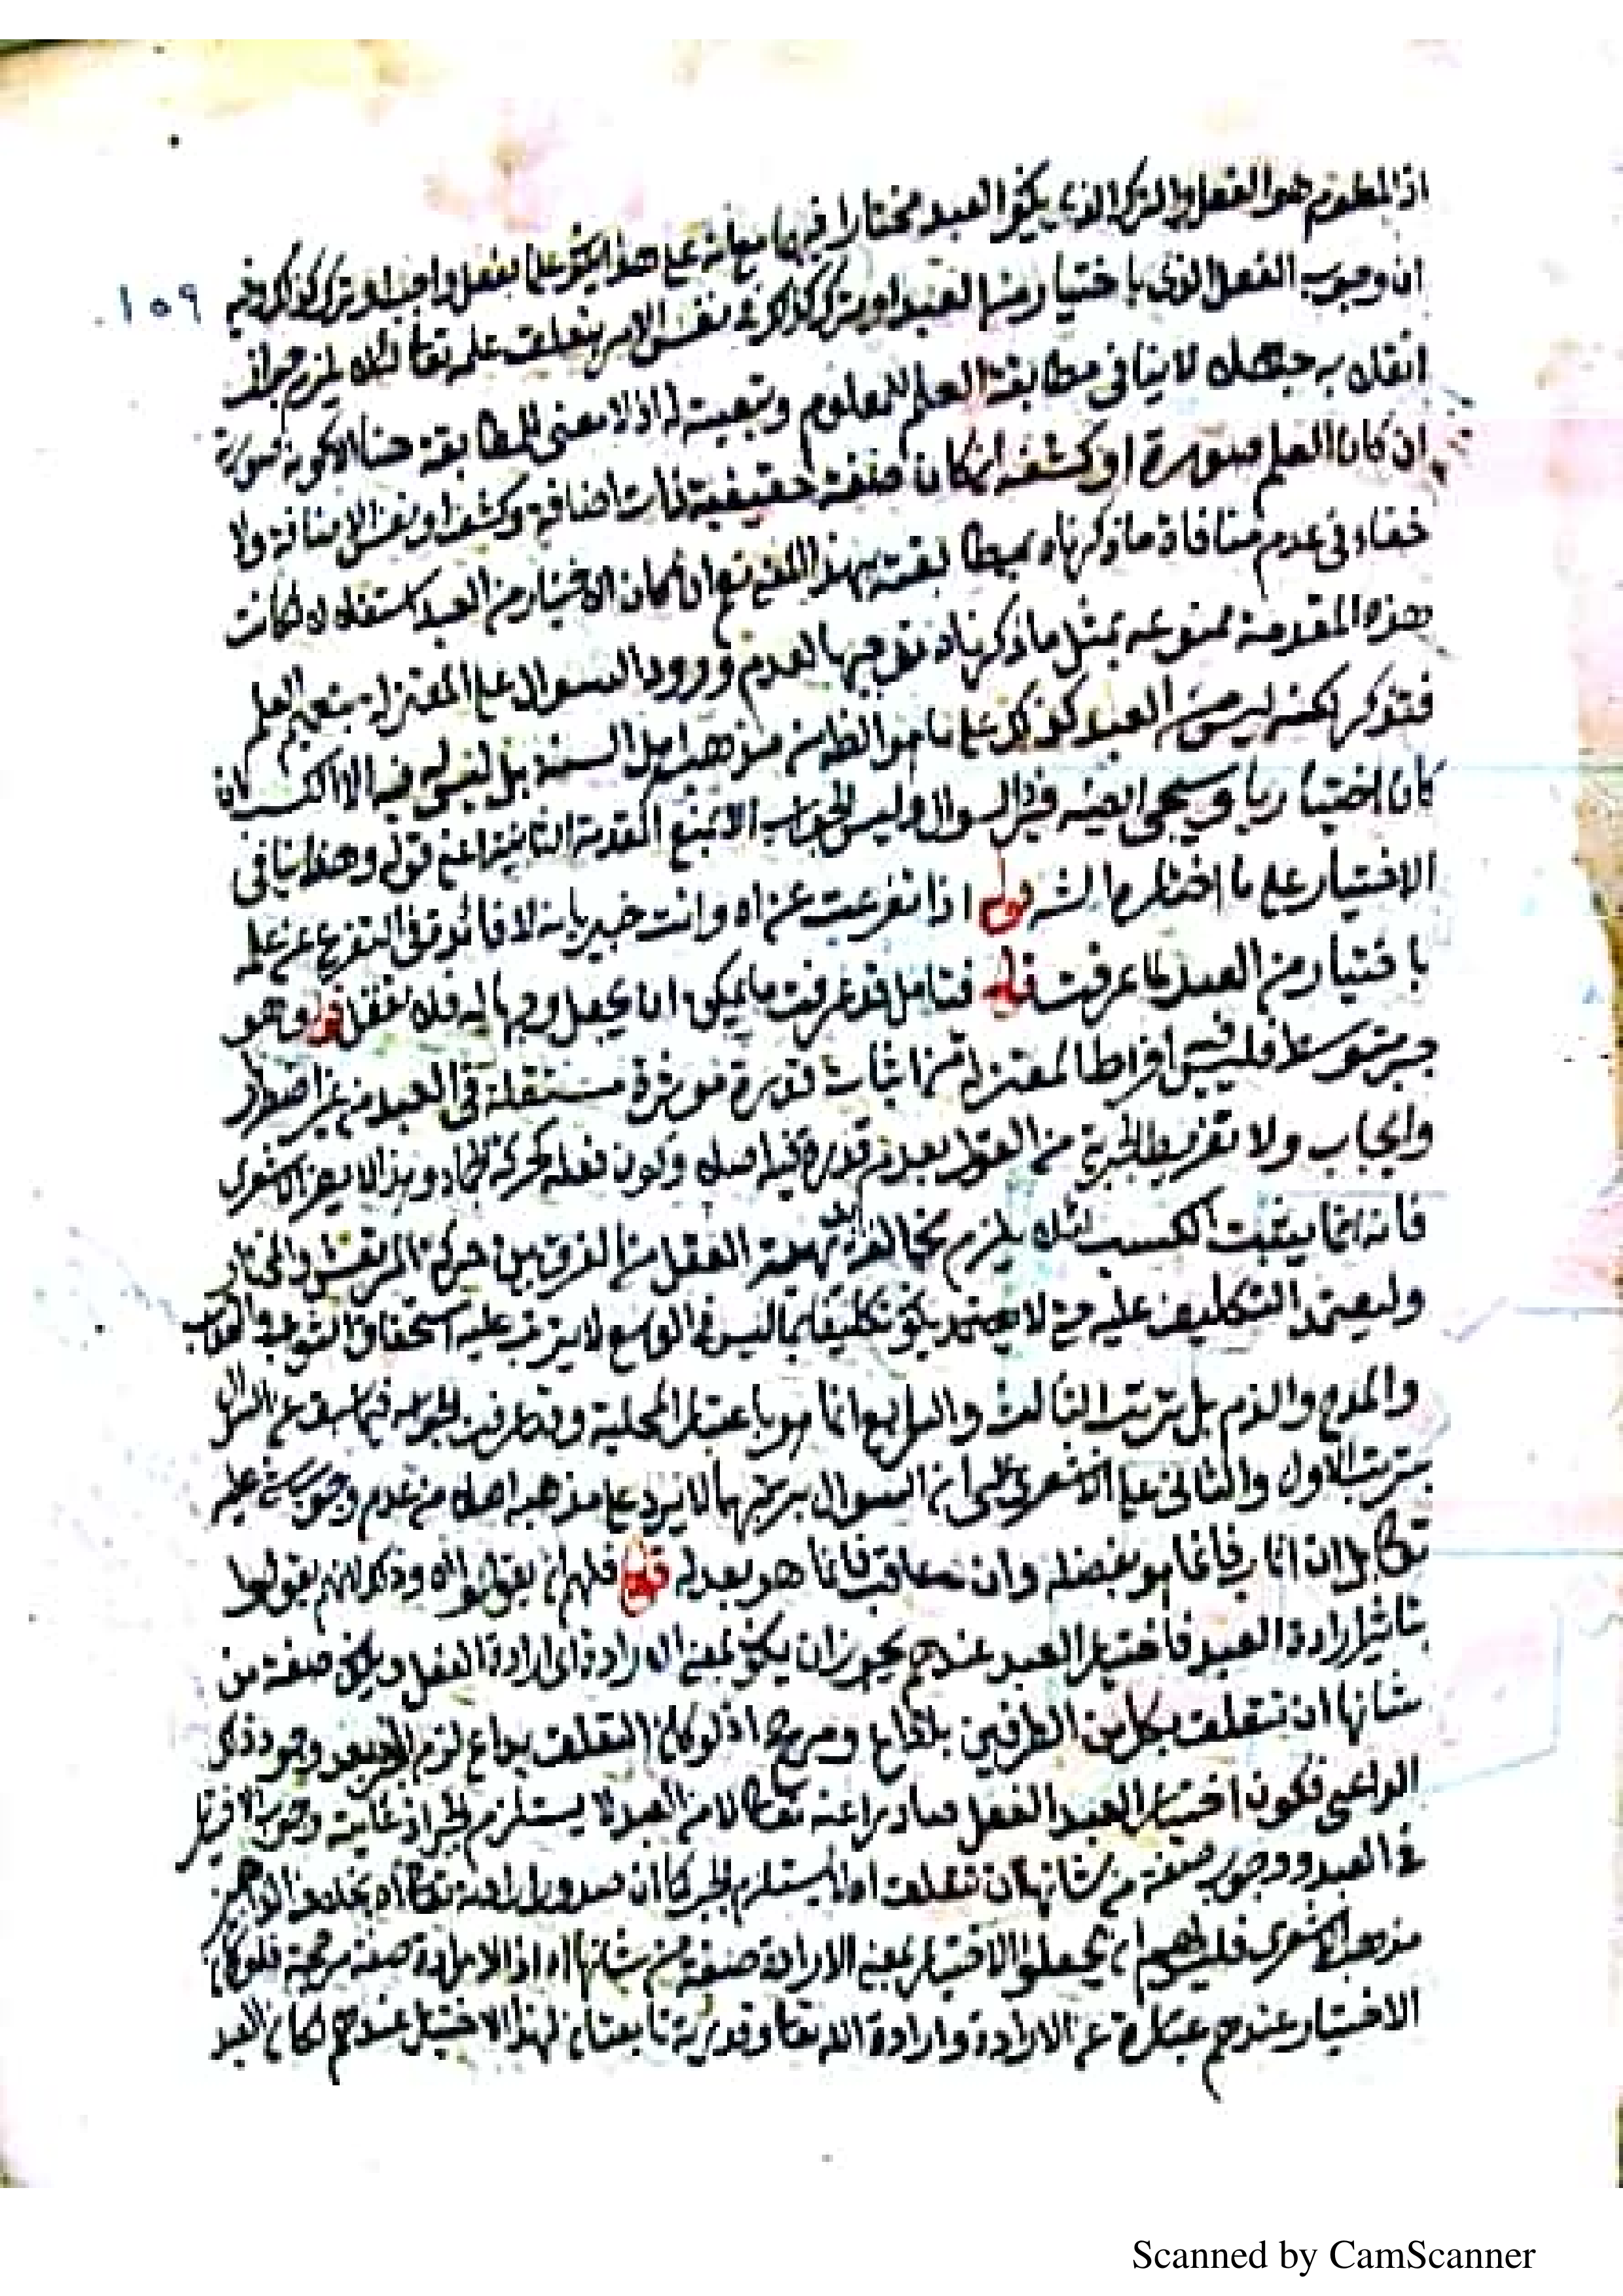 اذ المعلوم هو الفعل والترك الذى يكون العبد مختارا فيهما مع انه على هذا يكون علما بفعل واجب او ترك كذلك وفيه
١٥٩
ان وجوب الفعل الذى باختيار من العبد او ترك كذلك فى نفس الامر بتعلق علمه تعا لئلا يلزم جواز
انقلابه جهلا لا ينافى مطابقة العلم للمعلوم وتبعيته له اذ لا معنى للمطابقة هنا الا كونه صورة
ان كان العلم صورة او كشفه ان كان صفة حقيقية ذات اضافة وكشفا او نفس الاضافة ولا
خفاء فى عدم منافاة ما ذكرناه لمطابقته بهذا المعنى نعم ان كان الاختيار من العبد استقلالا لكانت
هذه المقدمة ممنوعة بمثل ما ذكرناه توجيها لعدم ورود السوال على المعتزلة بتعميم العلم
فتذكر لكنه ليس من العبد كذلك على ما هو الظاهر من مذهب اهل السنة بل ليس له فيه الا الكسب وان
كان اختياريا وسيجى بعيد هذا السوال وليس الجواب الا بمنع المقدمة الثانية اعنى قوله وهذا ينافى
الاختيار على ما اختاره الشر قوله اذا تفرعت عن اه وانت خبير بانه لا فائدة فى التفرع عن علمه
باختيار من العبد لما عرفت قوله فتامل قد عرفت ما يمكن ان يجعل وجها له فلا تغفل قوله وهو
جبر متوسط فليس فيه افراط المعتزلة من اثبات قدرة موثرة مستقلة فى العبد من غير اضطرار
وايجاب ولا تفريط الجبرية من القول بعدم قدرة فيه اصلا وكون فعله كحركة الجماد وهذا لا يعم الاشعرى
فانه انما يثبت الكسب لئلا يلزم مخالفة بديهة العقل من الفرق بين حركة المرتعش والمختار
وليصح التكليف عليه حتى لا يكون تكليفا بما ليس فى الوسع لا يترتب عليه استحقاق الثواب والعقاب
والمدح والذم بل ترتب الثالث والرابع انما هو باعتبار المحلية وقد عرفت الجواب فيما سبق عن السوال
بترتب الاول والثانى على الاشعرى على ان السوال بترتبهما لا يرد على مذهبه اصلا من عدم وجوب شئ عليه
تعا بل ان اثاب فانما هو بفضله وان عاقب فانما هو بعدله قوله فلهم ان يقولوا اه وذلك لانهم يقولوا
بتاثير ارادة العبد فاختيار العبد عندهم يجوز ان يكون بمعنى الارادة اى ارادة الفعل ويكون صفة من
شانها ان تتعلق بكل من الطرفين بلا داع ومرجح اذ لو كان التعلق بداع لزم الوجوب بعد وجود ذلك
الداعى فكون اختيار العبد الفعل صادرا عنه تعا لا من العبد لا يستلزم الجبر اذ غايته وجوب الاختيار
فى العبد ووجوب صفة من شانها ان تتعلق اه لا يستلزم الجبر كما ان صدور ارادته تعا اه بخلاف
مذهب الاشعرى فليس لهم ان يجعلوا الاختيار بمعنى الارادة صفة من شانها اه اذ الارادة صفة مرجحة فلو كان
الاختيار عندهم عبارة عن الارادة وارادة الله تعا وقدرته تابعتان لهذا الاختيار عندهم لكان العبد
Scanned by CamScanner